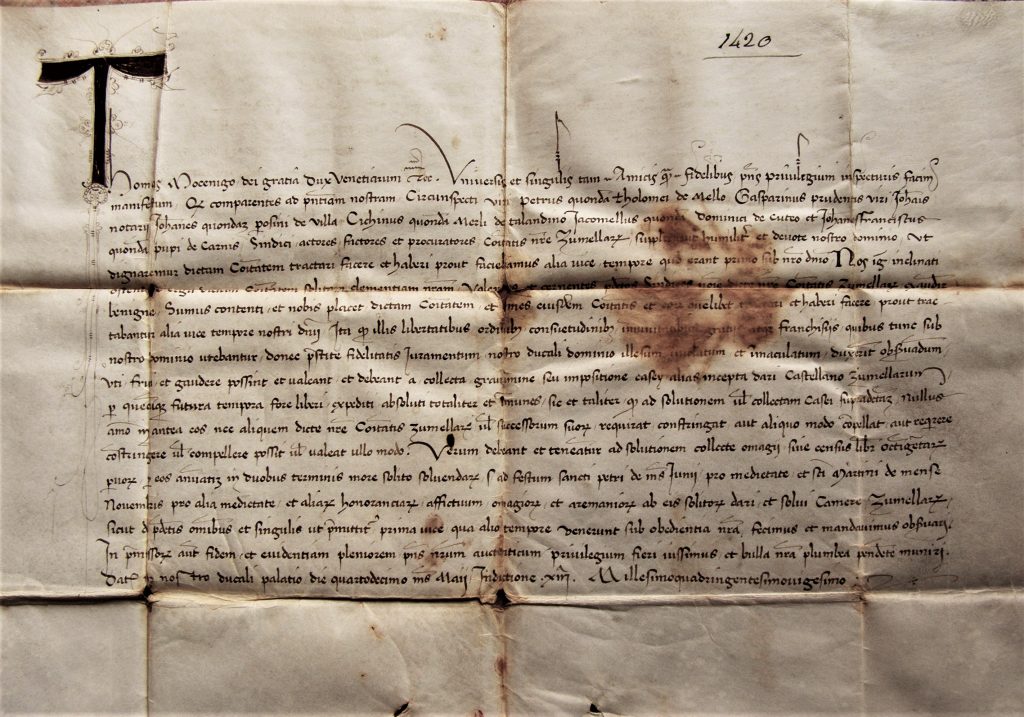 1420
Thomas Mocenigo dei gratia dux Venetiarum etc. Universis et singulis tam Amicis qz fidelibus pns privilegium inspecturis facim9
manifestum Qz comparentes ad pntiam nostram Circunspecti Viri Petrus quondā Tholomei de Mello Gasparinus prudentis viri Johais
notarij Johanes quondaz posini de Villa Cichinus quondā Merli de talandino Jacomellus quondā Dominici de Cuteo et Johanes franciscus
quondā pupi de Carnis Sindici actores factores et procuratores Coitatis nre Zumellaꝝ supplicarunt humilitr et devote nostro dominio Ut
dignaremur dictam Coitatem tractari facere et haberi prout faciebamus alia vice tempore quo erant primo sub nro dnio Nos ig inclinati
solitam clementiam nram nre Coitatis Zumellaꝝ
benigne Sumus contenti et nobis placet dictam Coitatem et omes eiusdem Coitatis et haberi facere prout trac
tabantur alia vice tempore nostri dnij Itꝫ qꝫ illis libertatibus ordinibꝫ consuetudinibꝫ immunitatibus gratijs atqꝫ franchisijs quibus tunc sub
nostro dominio utebantur donec pstite fidelitatis Juramentum nostro ducali dominio illesum inviolatum et inmaculatum duxerit obsvadum
Uti frui et gaudere possint et valeant et debeant a collecta gravimine seu impositione casey alias incepta dari Castellano Zumellarum
ꝑ quecūqꝫ futura tempora fore liberi expediti absoluti totaliter et imunes sic et taliter qꝫ ad solutionem ul collectam Casei supradetaꝫ Nullus
amō mantea eos nec aliquem dicte nre Coitatis Zumellaꝝ ul successorum suoꝝ requirat constringat aut aliquo modo cōpellat aut reqrere
costringere ul compellere possit ul valeat ullo modo Verum debeant et teneatur ad solutionem collecte omagij sive census libr octigentaꝝ
parvoꝝ ꝑ eos anuatiꝫ in duobus terminis more solito solvendaꝝ S ad festum sancti petri de mse Junij pro medietate et sci Martini de mense
Novembris pro alia medietate et aliaꝝ honoranciaꝝ affictuum omagioꝝ et aremanioꝝ ab eis solitoꝝ dari et solui Camere Zumellaꝝ
sicut de pdetis omibus et singulis ut pmittitr prima vice qua alio tempore venerunt sub obedientia nrā fecimus et mandavimus obsvari
In pmissoꝝ aut fidem et evidentiam pleniorem pns nrum auctenticum privilegium fieri iussimus et bulla nra plumbea pendete muniri
Dat in nostro ducali palatio die quartodecimo mse Maij Indictione xiij Millesimoquadringentesimovigesimo